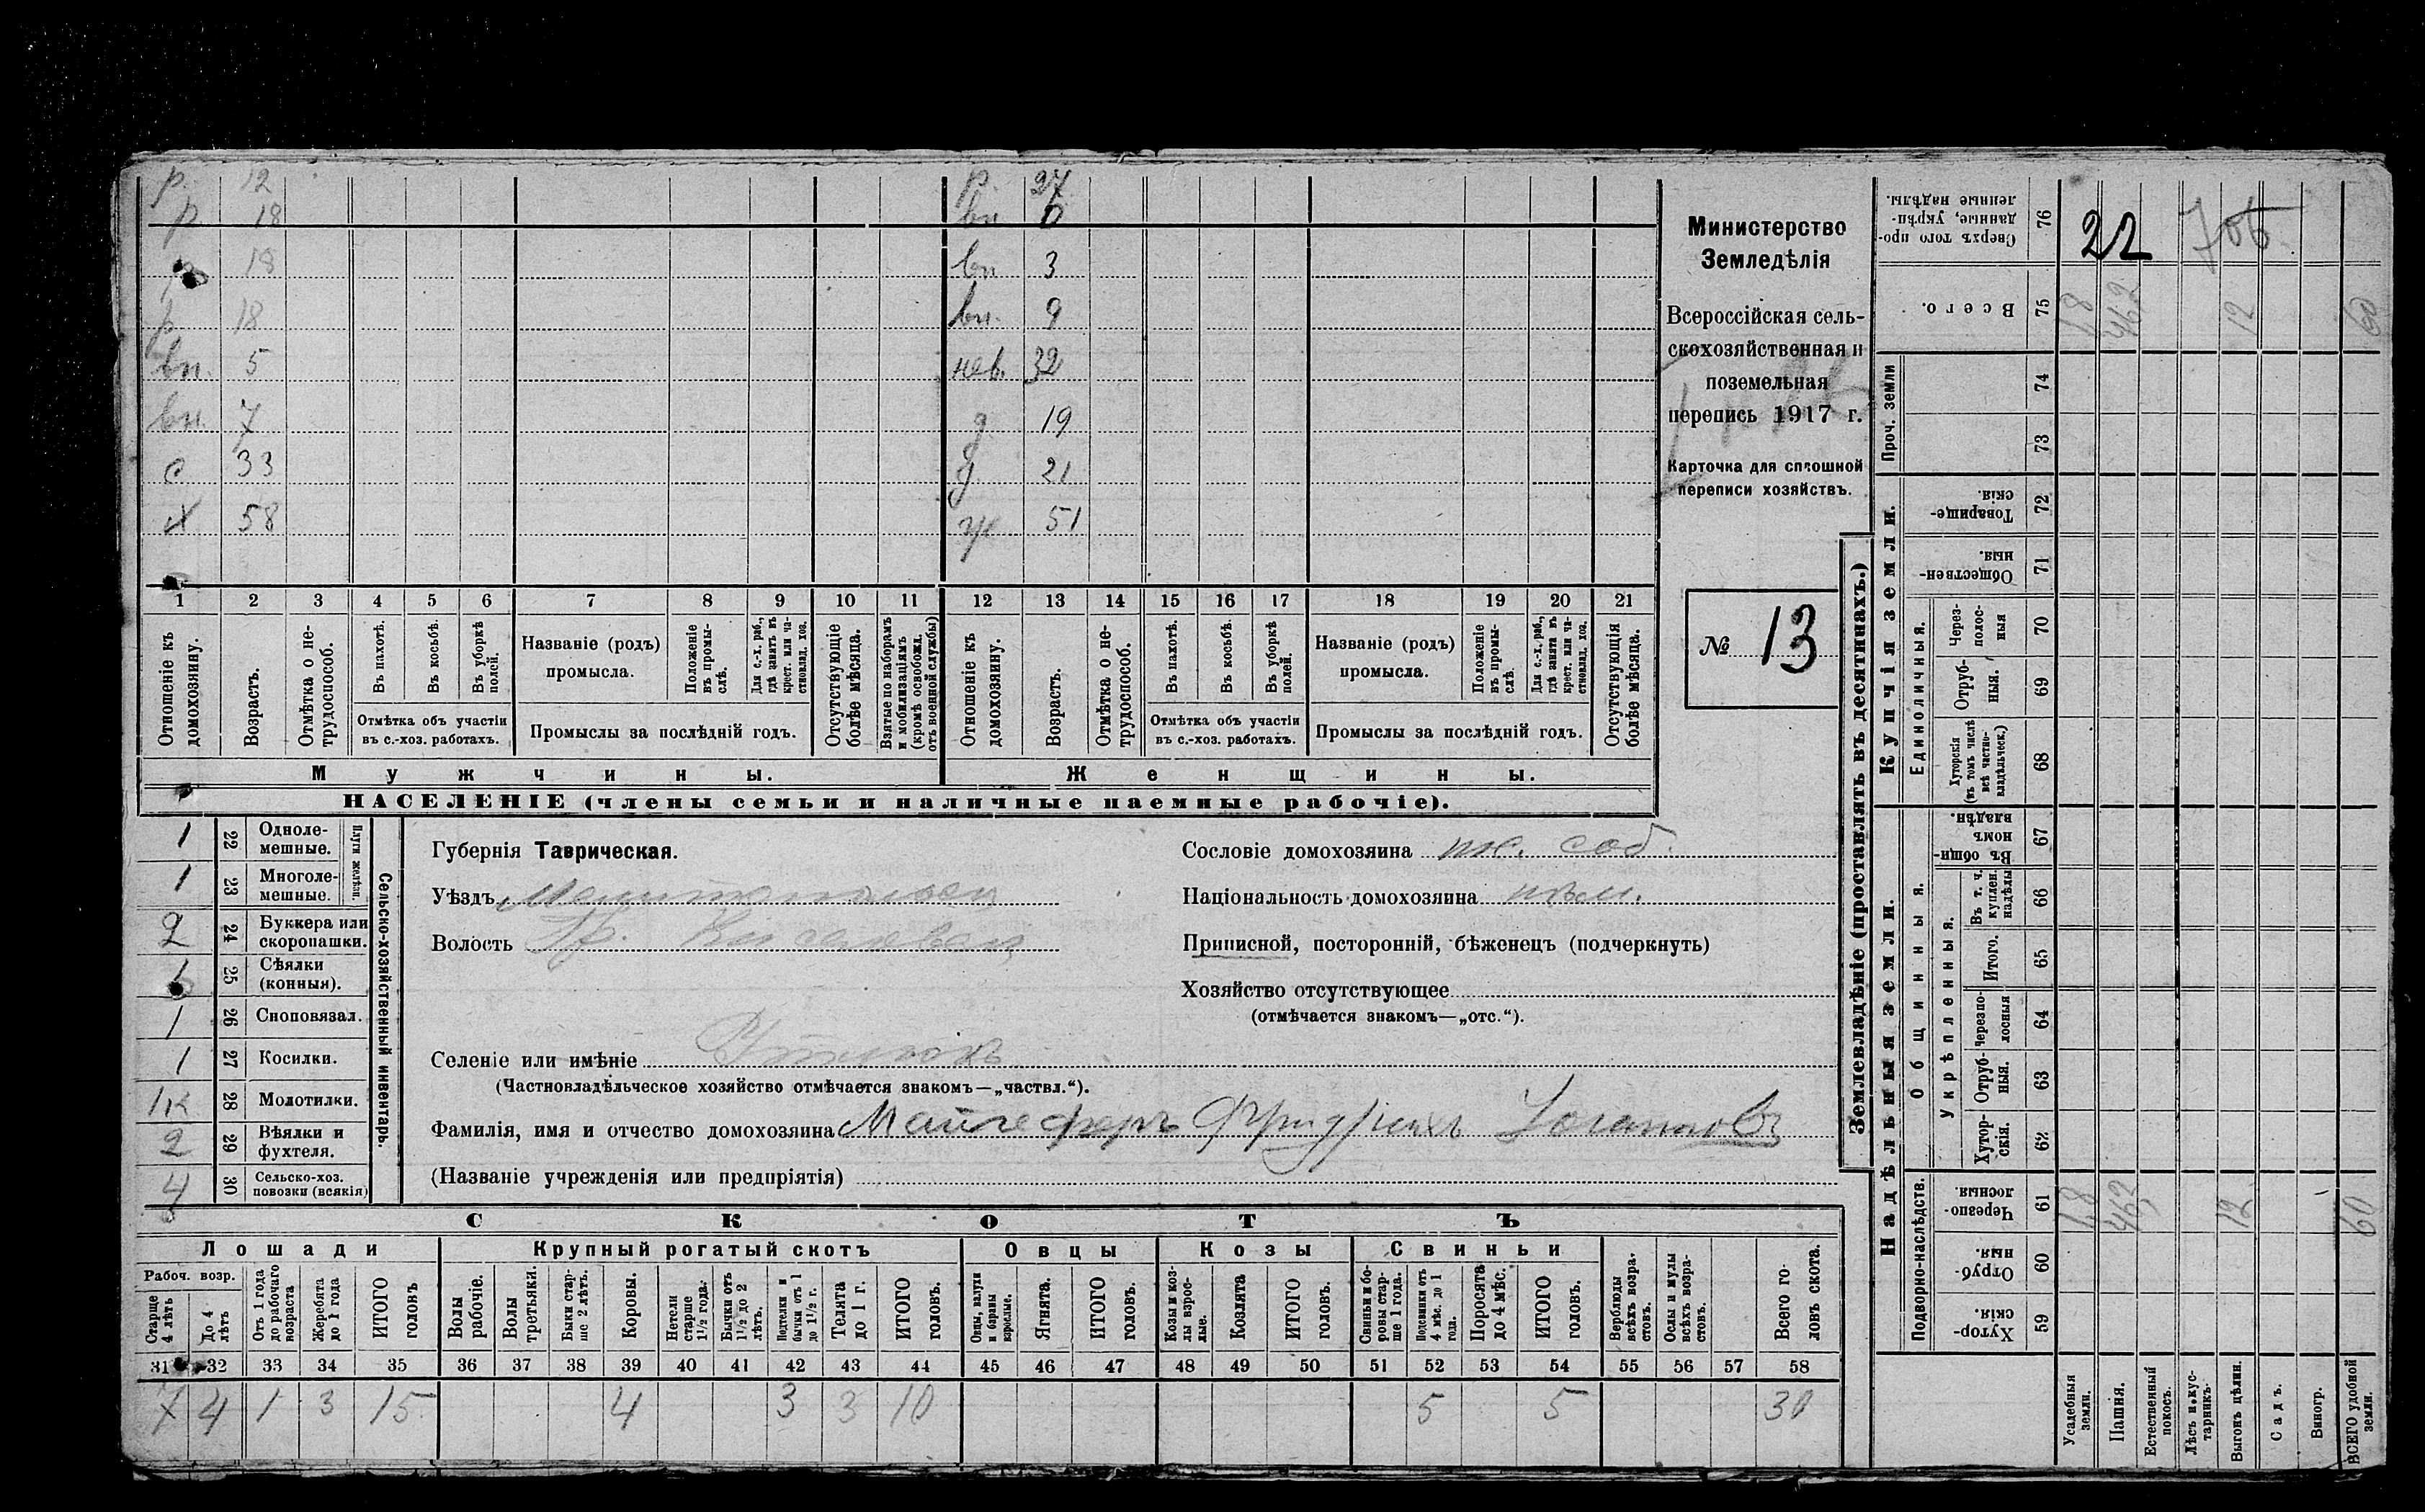 р. 12 р. 27
р. 18 вн. 6
18 вн 3
р 18 вн. 9
вн. 5 нев. 32
вн. 7 д. 19
с 33 д. 21
х 58 ж. 51
1 2 3 4 5 6 7 8 9 10 11 12 13 14 15 16 17 18 19 20 21
Отношеніе къ домохозяину.
Возрастъ.
Отмѣтка о не-трудоспособ.
Въ пахотѣ.
Въ косьбѣ.
Въ уборкѣ полей.
Отмѣтка объ участіи въ с.-хоз. работахъ.
Названіе (родъ) промысла.
Положеніе въ промы-слѣ.
Для с.-х. раб., гдѣ занятъ въ крест. или ча-стновлад. хоз.
Промыслы за послѣдній годъ.
Отсутствующіе болѣе мѣсяца.
Взятые по наборамъ и мобилизаціямъ (кромѣ освобожд. отъ военной службы)
Отношеніе къ домохозяину.
Возрастъ.
Отмѣтка о не-трудоспособ.
Въ пахотѣ.
Въ косьбѣ.
Въ уборкѣ полей.
Отмѣтка объ участіи въ с.-хоз. работахъ.
Названіе (родъ) промысла.
Положеніе въ промы-слѣ.
Для с.-х. раб., гдѣ занята въ крест. или ча-стновлад. хоз.
Промыслы за послѣдній годъ.
Отсутствующія болѣе мѣсяца.
Мужчины. Женщины.
НАСЕЛЕНІЕ (члены семьи и наличные наемные рабочіе).
Министерство
Земледѣлія
Всероссійская сель-
скохозяйственная и
поземельная
перепись 1917 г.
Карточка для сплошной
переписи хозяйствъ.
№ 13
1 22 Одноле-мешные.
1 23 Многоле-мешные.
Плуги желѣзн.
2 24 Буккера или скоропашки.
25 Сѣялки (конныя).
1 26 Сноповязал.
1 27 Косилки.
28 Молотилки.
2 29 Вѣялки и фухтеля.
4 30 Сельско-хоз. повозки (всякія)
Сельско-хозяйственный инвентарь.
Губернія Таврическая.
Уѣздъ Мелитопольск
Волость
Селеніе или имѣніе
(Частновладѣльческое хозяйство отмѣчается знакомъ—„частвл.“).
Фамилія, имя и отчество домохозяина Майгеферъ Фридрихъ Иогановъ
(Названіе учрежденія или предпріятія)
Сословіе домохозяина пос. соб.
Національность домохозяина нѣм.
Приписной, посторонній, бѣженецъ (подчеркнуть)
Хозяйство отсутствующее
(отмѣчается знакомъ—„отс.“).
СКОТЪ
Лошади Крупный рогатый скотъ Овцы Козы Свиньи
Рабоч. возр.
Старше 4 лѣтъ
До 4 лѣтъ
Отъ 1 года до рабочаго возраста
Жеребята до 1 года
ИТОГО головъ
Волы рабочіе.
Волы третьяки.
Быки стар-ше 2 лѣтъ.
Коровы.
Нетели старше 1½ года.
Бычки отъ 1½ до 2 лѣтъ.
Подтелки и бычки отъ 1 до 1½ г.
Телята до 1 г.
ИТОГО головъ.
Овцы, валухи и бараны взрослые.
Ягнята.
ИТОГО головъ.
Козы и коз-лы взрос-лые.
Козлята
ИТОГО головъ.
Свиньи и бо-ровы стар-ше 1 года.
Подсвинки отъ 4 мѣс. до 1 года.
Поросята до 4 мѣс.
ИТОГО головъ.
Верблюды всѣхъ возра-стовъ.
Ослы и мулы всѣхъ возра-стовъ.
Всего го-ловъ скота.
31 32 33 34 35 36 37 38 39 40 41 42 43 44 45 46 47 48 49 50 51 52 53 54 55 56 57 58
7 4 1 3 15 4 3 3 10 5 5 30
Землевладѣніе (проставлять въ десятинахъ.)
Купчія земли.
Надѣльныя земли.
Сверхъ того про-данные, укрѣп-ленные надѣлы. 76 22
Всего. 75 1,8 46,2 12 60
Проч. земли 74
73
Товарище-скія. 72
Обществен-ныя. 71
Единоличныя.
Через-полос-ныя 70
Отруб-ныя. 69
Хуторскія (въ томъ числѣ всѣ частно-владѣльческ.) 68
Общинныя.
Въ общи-номъ владѣн. 67
Укрѣпленныя.
Въ т. ч. куплен. надѣлы 66
Итого. 65
Черезпо-лосныя 64
Отруб-ныя. 63
Хутор-скія. 62
Подворно-наслѣдств.
Черезпо-лосныя. 61 1,8 46,2 12 60
Отруб-ныя. 60
Хутор-скія. 59
Усадебныя земли.
Пашня.
Естественный покосъ.
Лѣсъ и кус-тарникъ.
Выгонъ цѣлин.
Садъ.
Виногр.
ВСЕГО удобной земли.